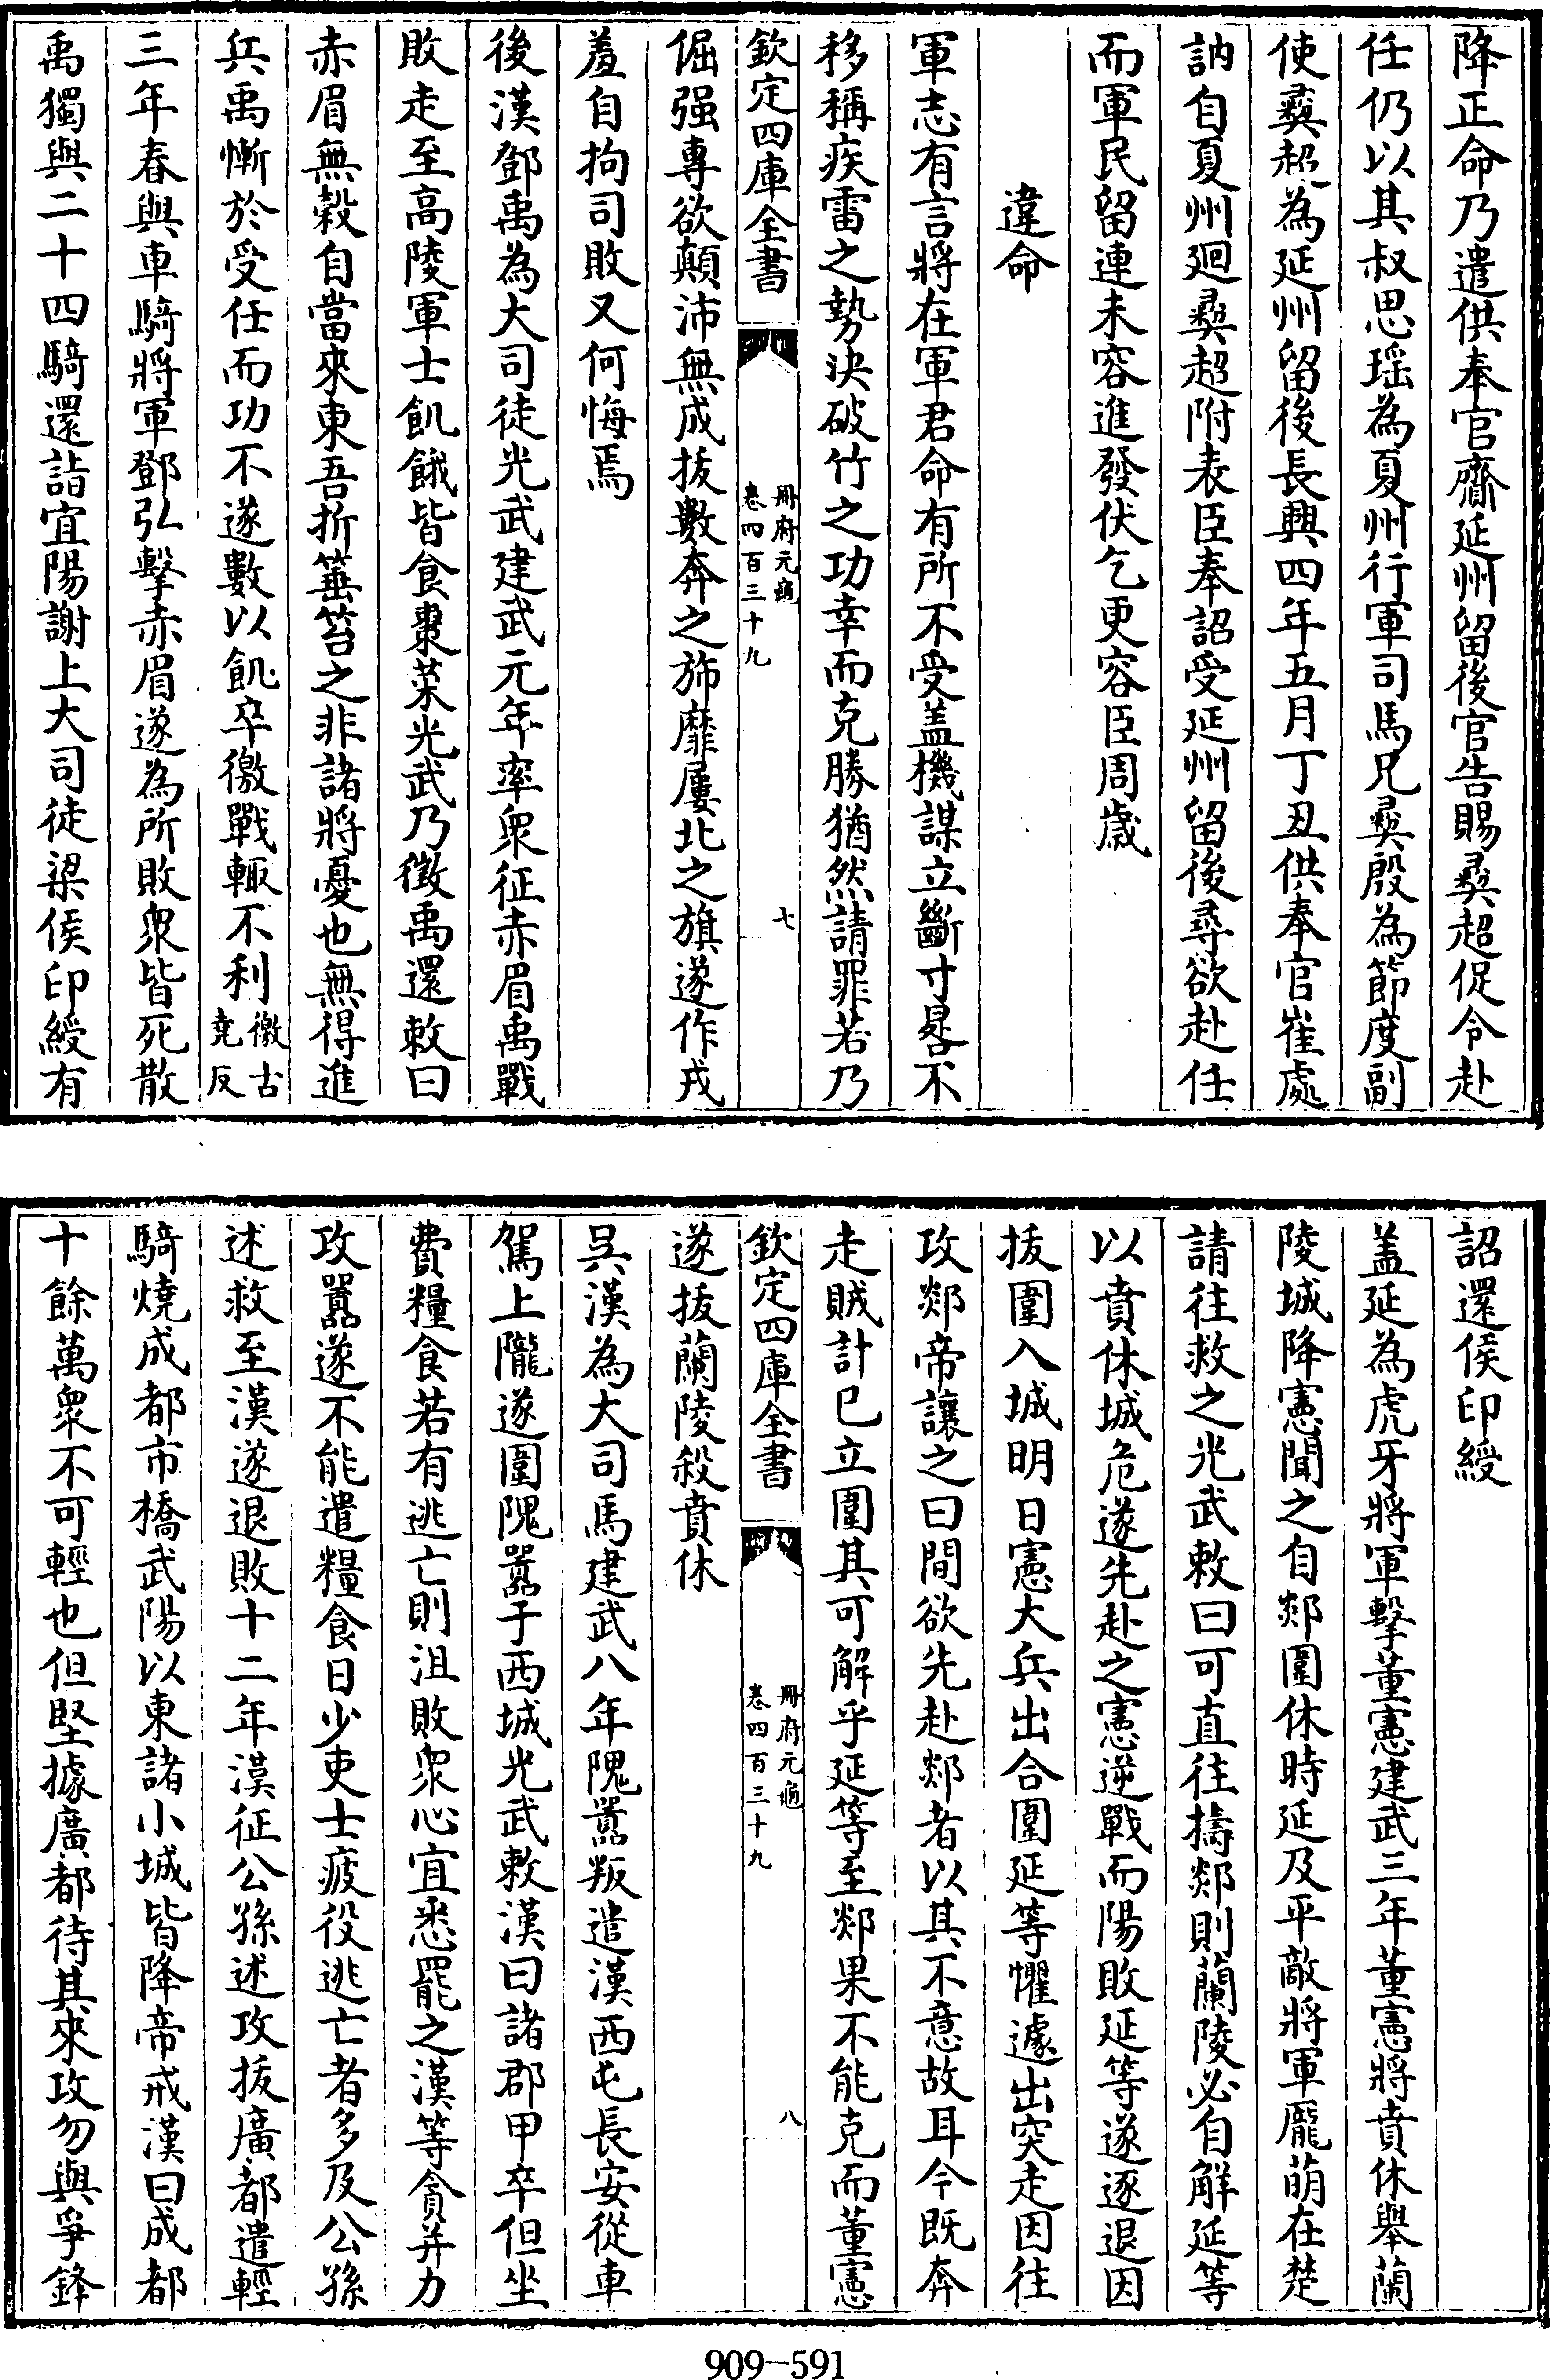 降正命乃遣供奉官齎延州留後官告賜彝超促令赴
任仍以其叔思瑶為夏州行軍司馬兄彝殷為節度副
使彝超為延州留後長興四年五月丁丑供奉官崔處
訥自夏州廻彝超附表臣奉詔受延州留後尋欲赴任
而軍民留連未容進發伏乞更容臣周歲
違命
軍志有言將在軍君命有所不受盖機謀立斷寸晷不
移稱疾雷之勢決破竹之功幸而克勝猶然請罪若乃
欽定四庫全書
冊府元龜
卷四百三十九
七
倔强專欲顛沛無成拔數奔之斾靡屢北之旗遂作戎
羞自拘司敗又何悔焉
後漢鄧禹為大司徒光武建武元年率衆征赤眉禹戰
敗走至高陵軍士飢餓皆食棗菜光武乃徵禹還敕曰
赤眉無穀自當來東吾折箠笞之非諸將憂也無得進
兵禹慚於受任而功不遂數以飢卒徼戰輒不利徼古堯反
三年春與車騎將軍鄧弘擊赤眉遂為所敗衆皆死散
禹獨與二十四騎還詣宜陽謝上大司徒梁侯印綬有
詔還侯印綬
盖延為虎牙將軍擊董憲建武三年董憲將賁休舉蘭
陵城降憲聞之自郯圍休時延及平敵將軍龐萌在楚
請往救之光武敕曰可直往擣郯則蘭陵必自解延等
以賁休城危遂先赴之憲逆戰而陽敗延等遂逐退因
拔圍入城明日憲大兵出合圍延等懼遽出突走因往
攻郯帝讓之曰間欲先赴郯者以其不意故耳今既奔
走賊計已立圍其可解乎延等至郯果不能克而董憲
欽定四庫全書
冊府元龜
卷四百三十九
八
遂拔蘭陵殺賁休
吳漢為大司馬建武八年隗囂叛遣漢西屯長安從車
駕上隴遂圍隗囂于西城光武敕漢曰諸郡甲卒但坐
費糧食若有逃亡則沮敗衆心宜悉罷之漢等貪并力
攻囂遂不能遣糧食日少吏士疲役逃亡者多及公孫
述救至漢遂退敗十二年漢征公孫述攻拔廣都遣輕
騎燒成都市橋武陽以東諸小城皆降帝戒漢曰成都
十餘萬衆不可輕也但堅據廣都待其來攻勿與爭鋒
909-591